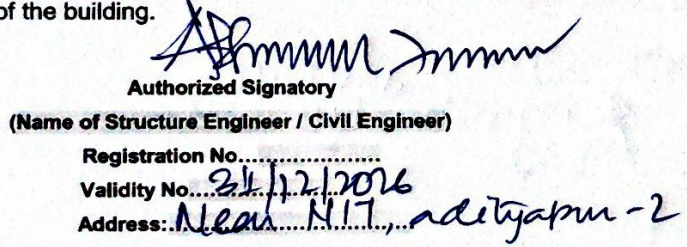 of the building.
Authorized Signatory
(Name of Structure Engineer / Civil Engineer)
Registration No.....................
Validity No...31/12/2026
Address:.Near NIT, adityapur-2